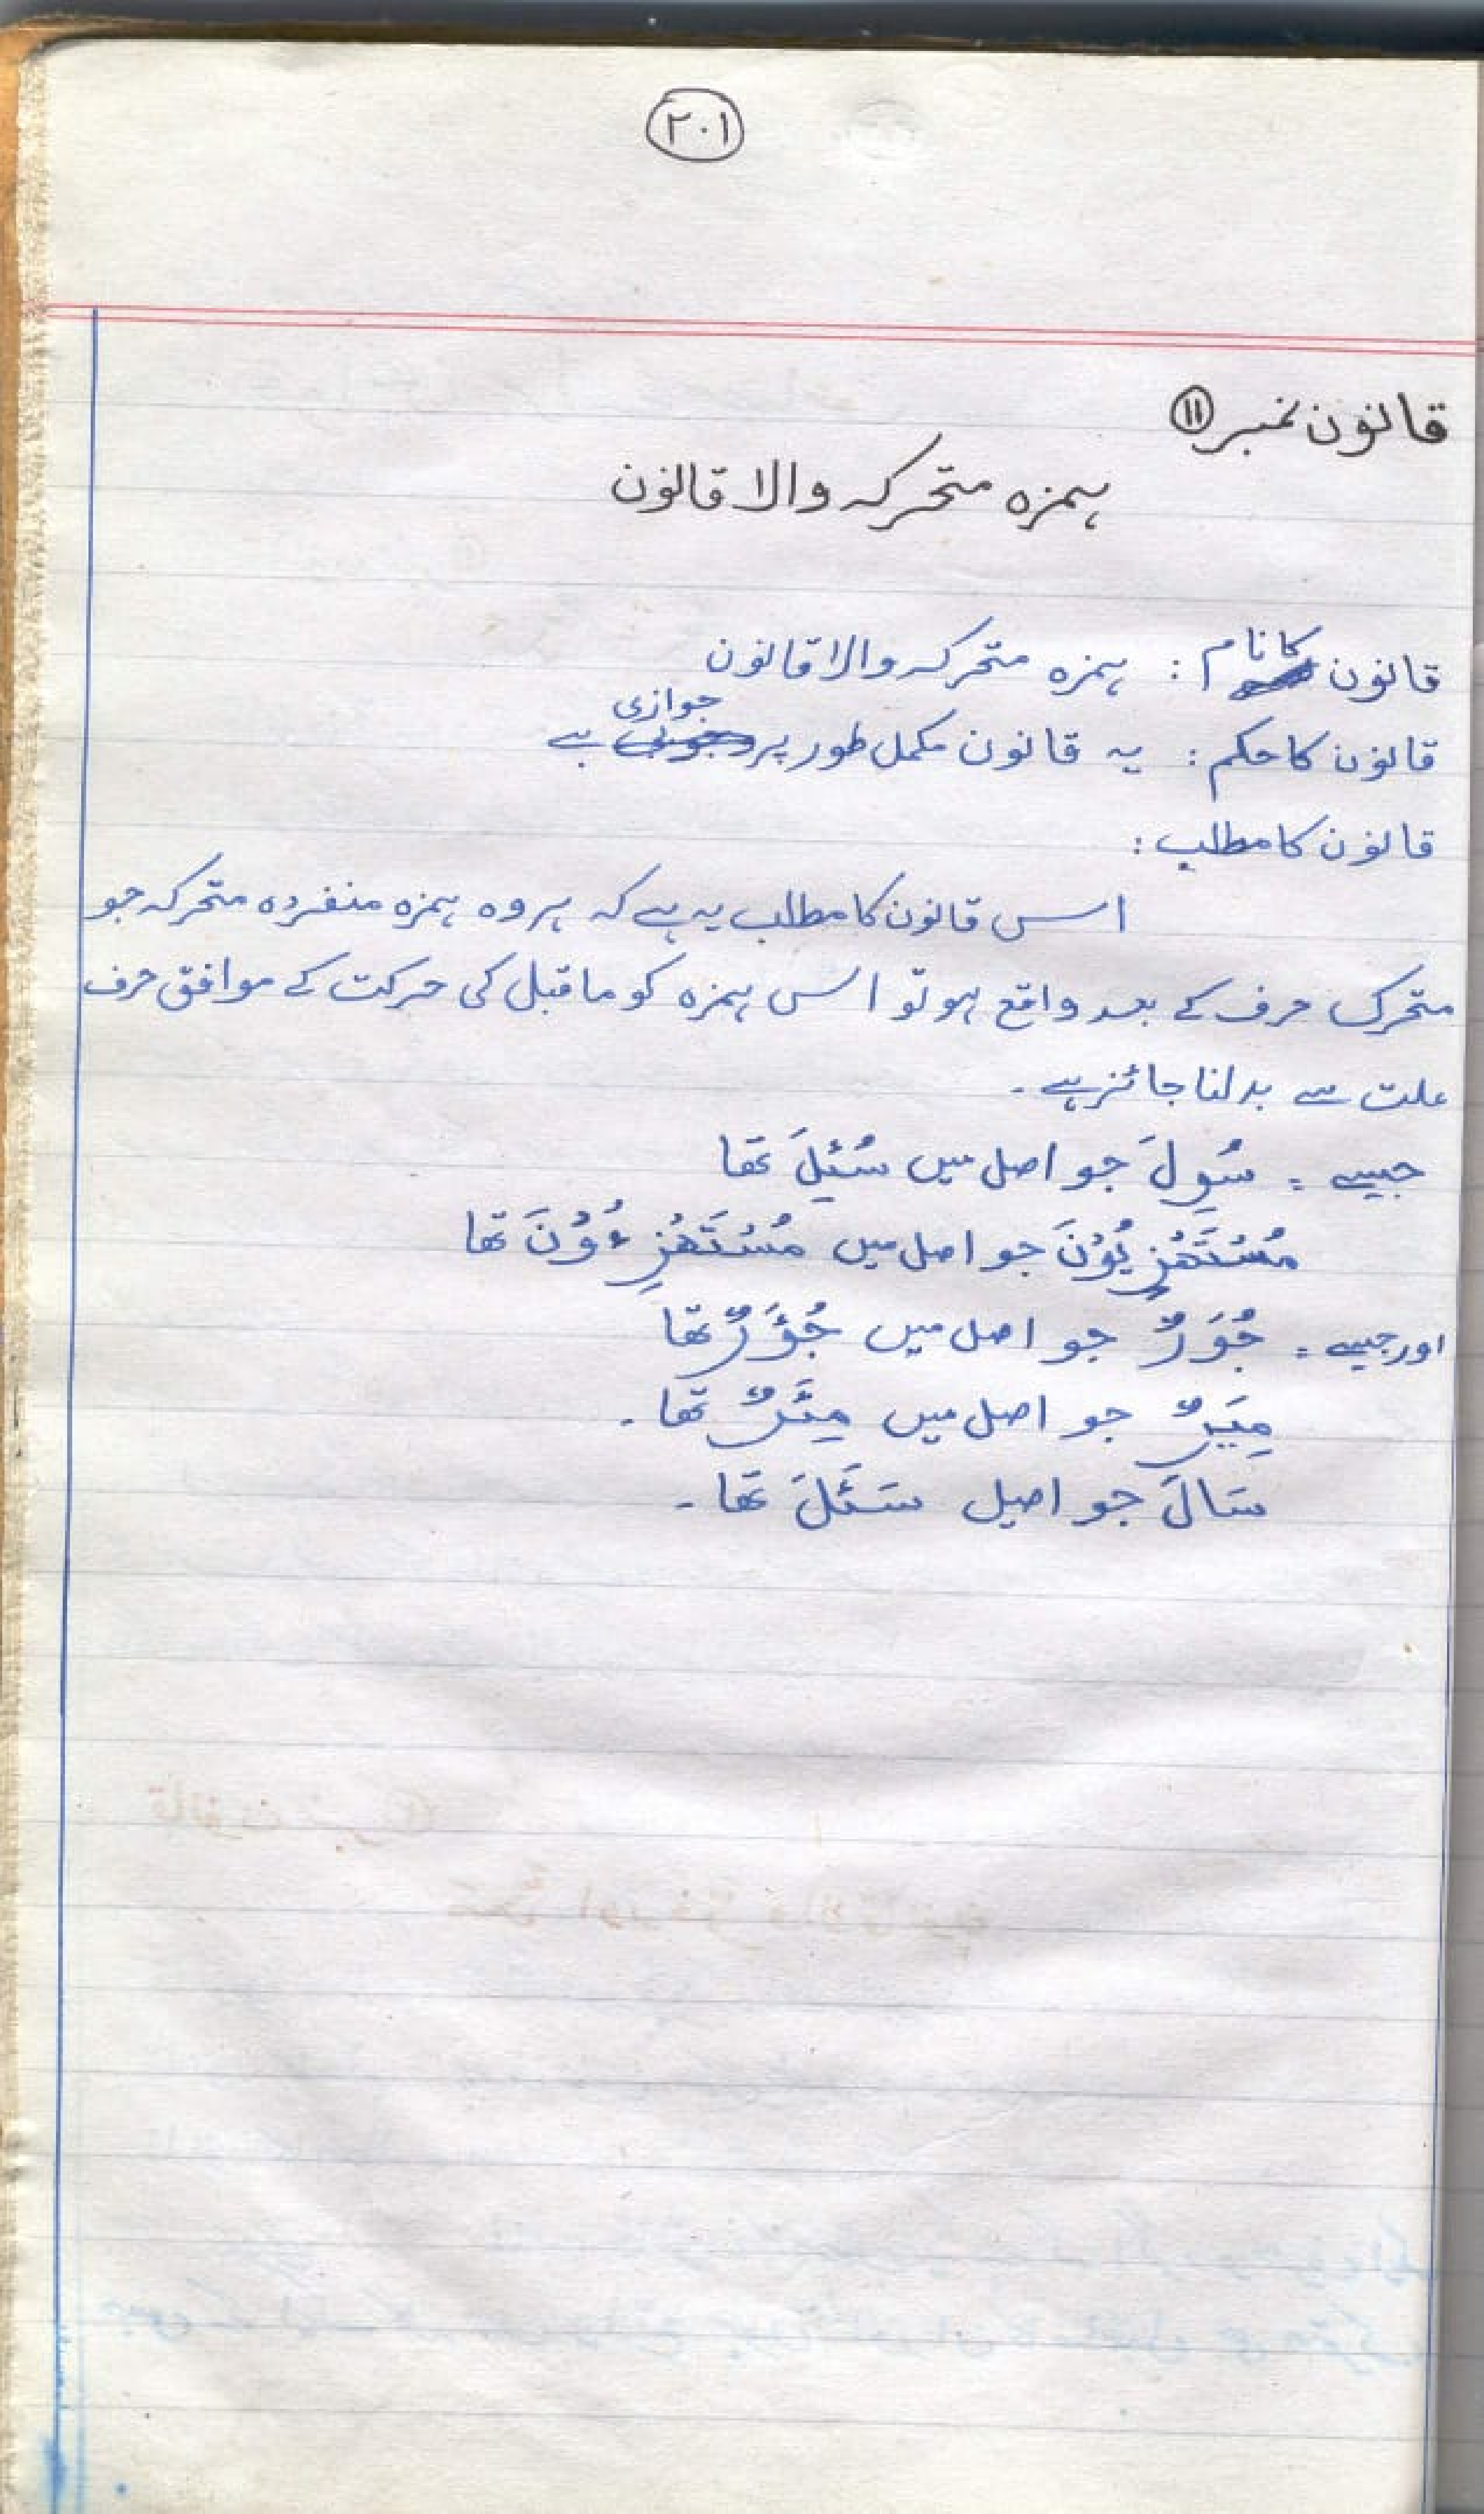 ۲۰۱
قانون نمبر ۱۱
ہمزہ متحرکہ والا قانون
قانون کا نام : ہمزہ متحرکہ والا قانون
قانون کا حکم : یہ قانون مکمل طور پر جوازی ہے
قانون کا مطلب :
اس قانون کا مطلب یہ ہے کہ ہر وہ ہمزہ منفردہ متحرکہ جو
متحرک حرف کے بعد واقع ہو تو اس ہمزہ کو ماقبل کی حرکت کے موافق حرف
علت سے بدلنا جائز ہے ۔
جیسے = سُوِلَ جو اصل میں سُئِلَ تھا
مُسْتَهْزِيُوْنَ جو اصل میں مُسْتَهْزِءُوْنَ تھا
اور جیسے = جُوَرٌ جو اصل میں جُؤَرٌ تھا
مِيَرٌ جو اصل میں مِئَرٌ تھا ۔
سَالَ جو اصل سَئَلَ تھا ۔